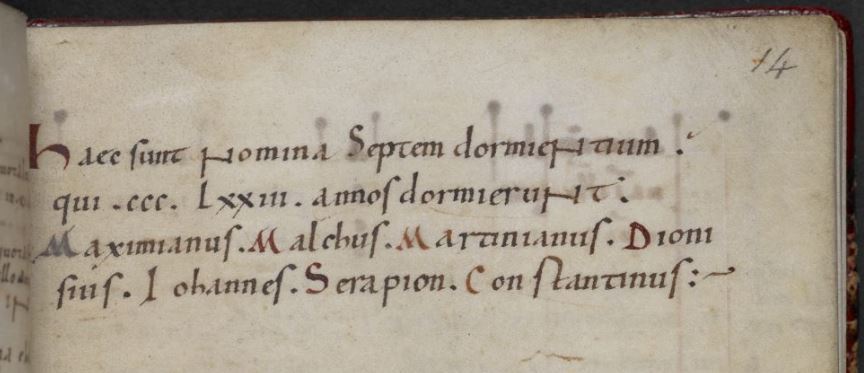 14
Haec sunt Nomina Septem dormieNtium .
qui . ccc . Lxxiii . annos dormieruNt .
Maximianus . Malchus . Martinianus . Dioni
sius . Iohannes . Serapion . Constantinus :~